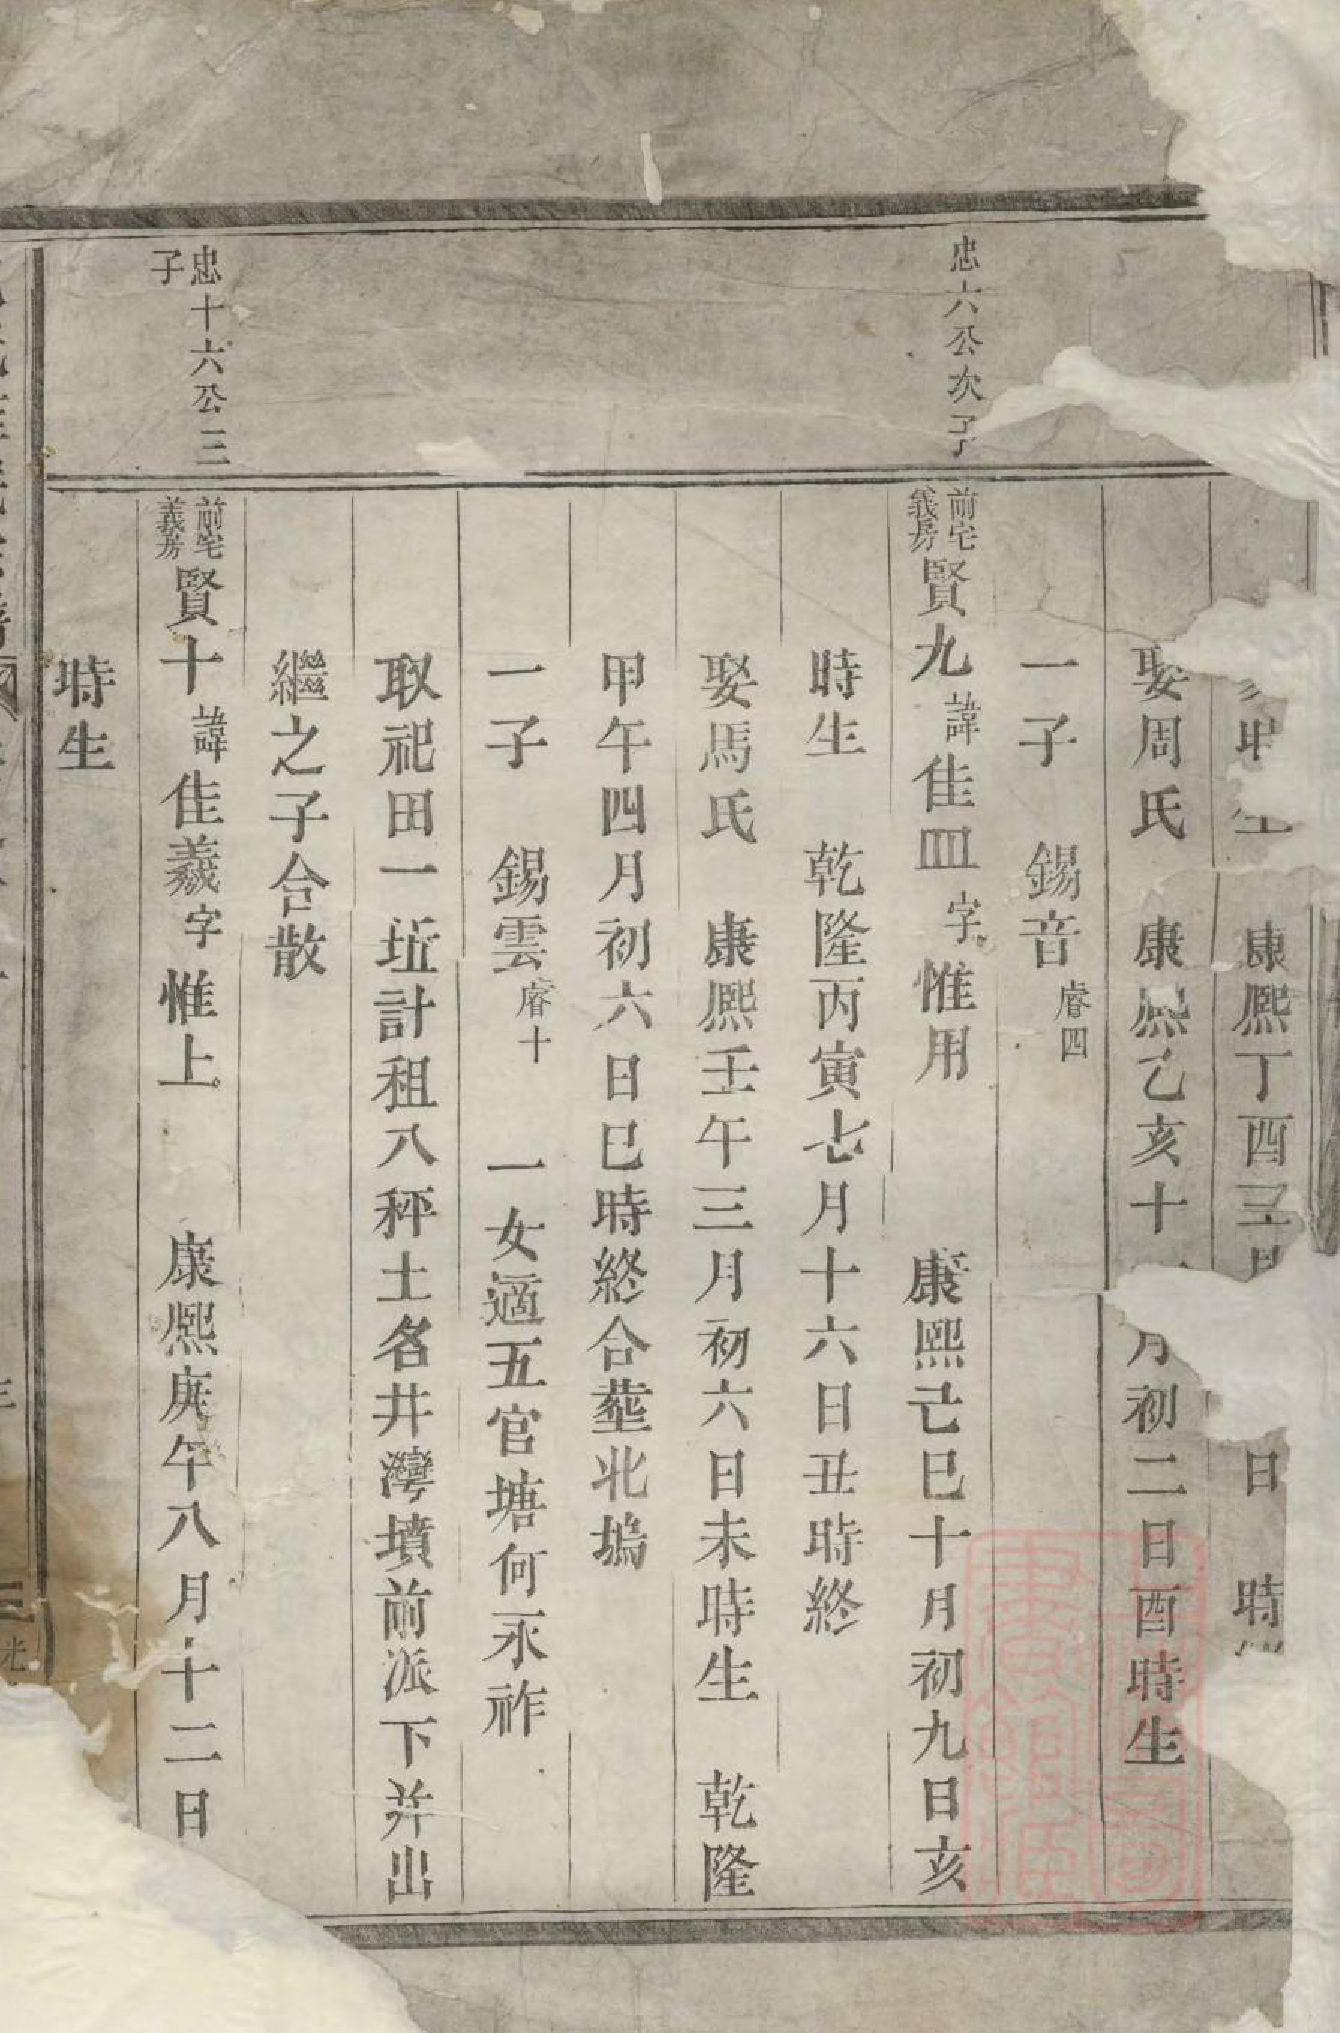 康熙丁酉三月
日
時
娶周氏 康熙乙亥十
月初二日酉時生
一子 錫音睿四
忠六公次子
前宅義房賢九諱佳皿字惟用 康熙己巳十月初九日亥
時生 乾隆丙寅七月十六日丑時終
娶馬氏 康熙壬午三月初六日未時生 乾隆
甲午四月初六日巳時終合塟北塢
一子 錫雲睿十 一女適五官塘何永祚
取祀田一坵計租八秤土名井灣墳前派下并出
繼之子合散
忠十六公三子
前宅義房賢十諱佳羲字惟上 康熙庚午八月十二日
時生